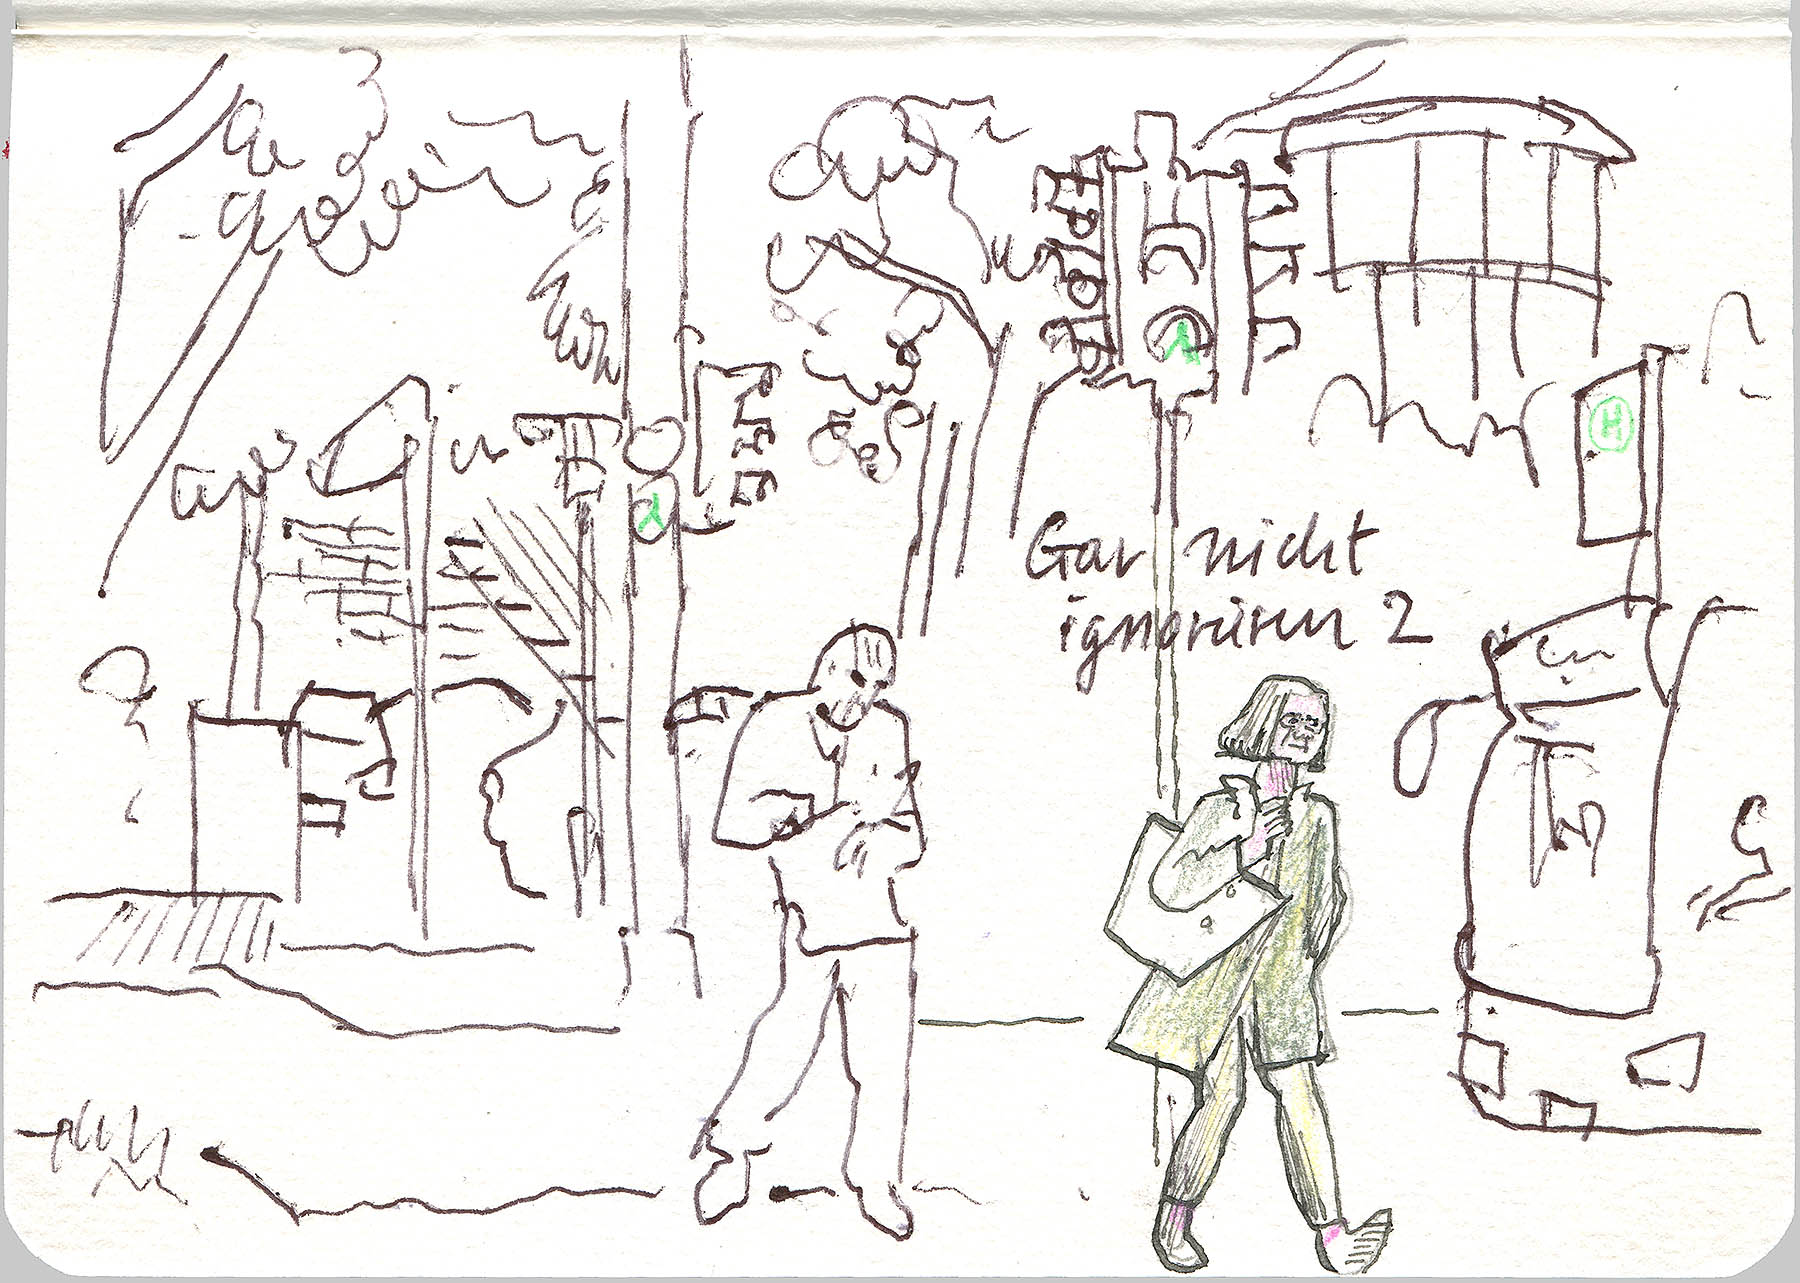 H
Gar nicht
ignorieren 2